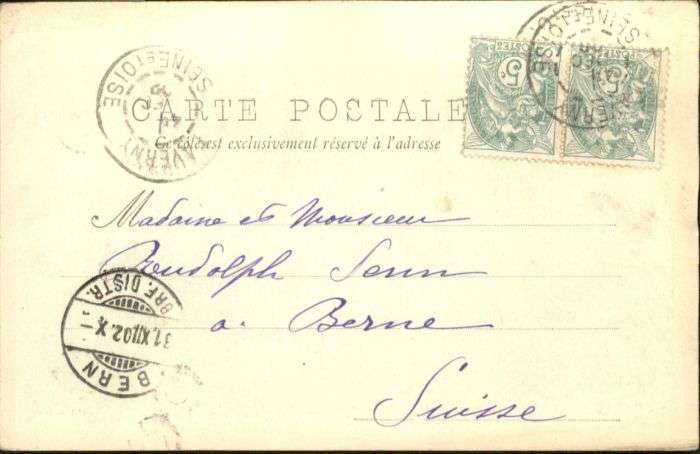 CARTE POSTALE
Ce côté est exclusivement réservé à l'adresse
5c
POSTES
5c
POSTES
TAVERNY
SEINE ET OISE
TAVERNY
SEINE ET OISE
Madame et Monsieur
Rudolph Senn
à Berne
Suisse
BRF. DISTR.
31.XII.02.X
BERN